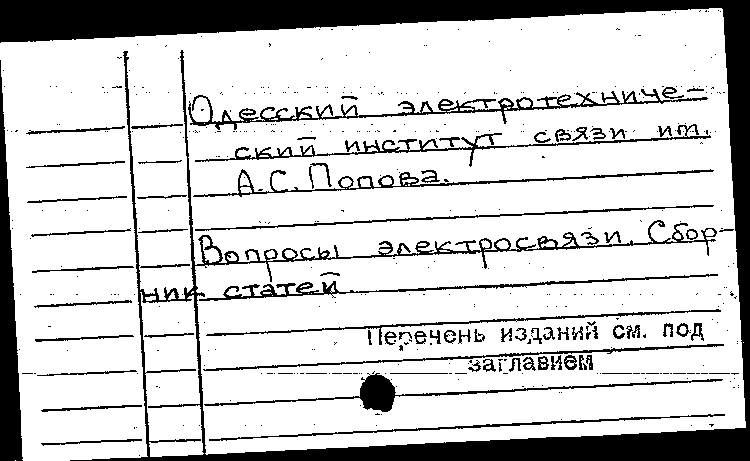 Одесский электротехниче-
ский институт связи им.
А.С. Попова.
Вопросы электросвязи. Сбор-
ник статей.
Перечень изданий см. под
заглавием